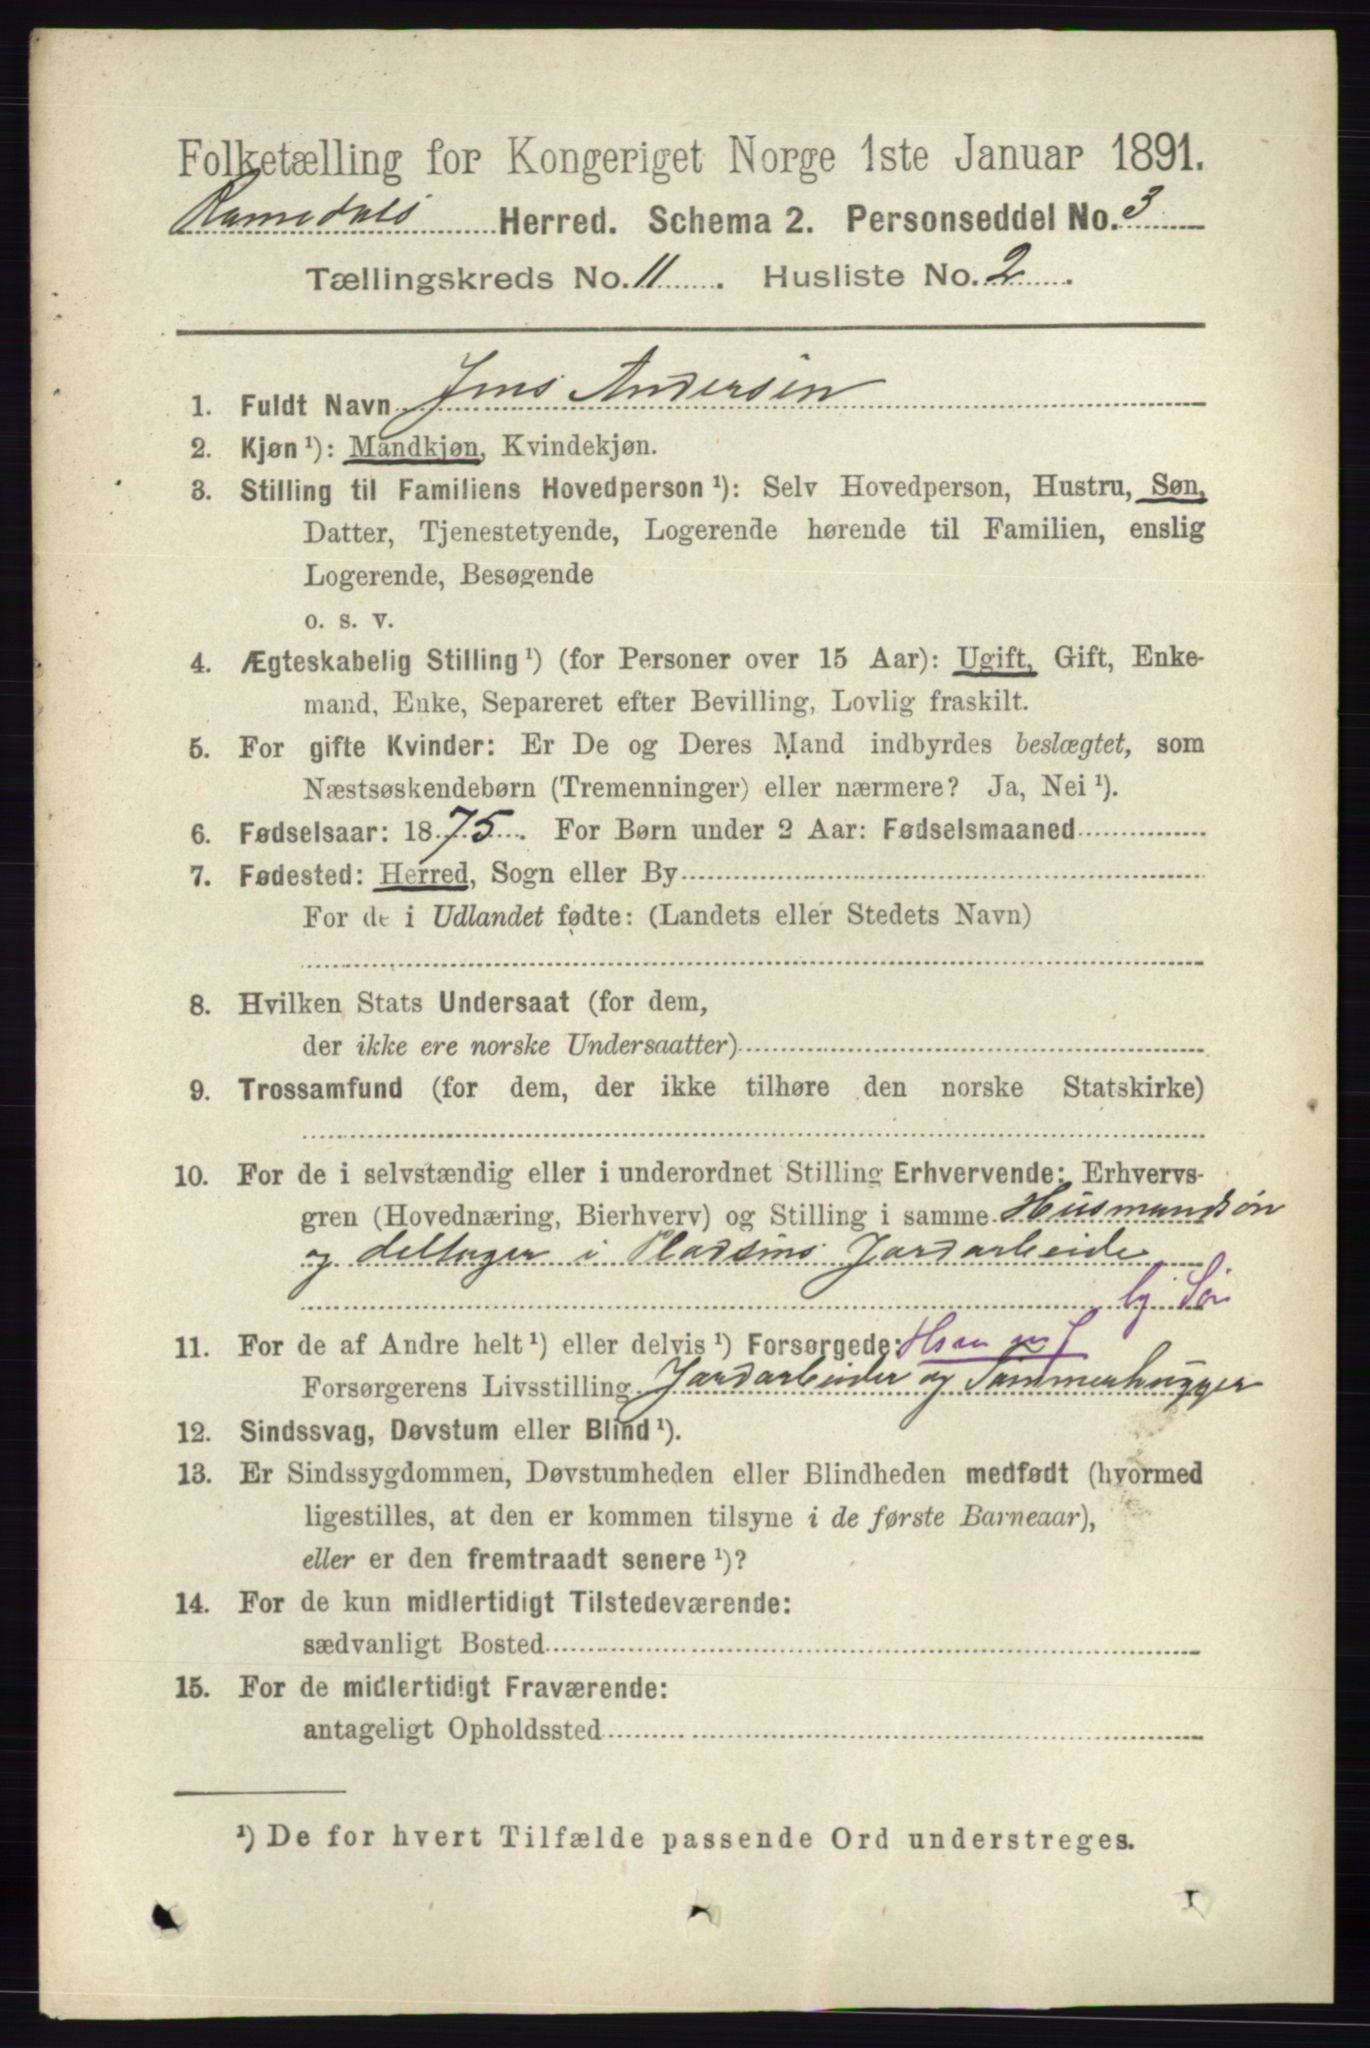 Folketælling for Kongeriget Norge 1ste Januar 1891.
Romedals Herred. Schema 2. Personseddel No. 3
Tællingskreds No. 11. Husliste No. 2.
1. Fuldt Navn Jens Andersen
2. Kjøn ¹): Mandkjøn, Kvindekjøn.
3. Stilling til Familiens Hovedperson ¹): Selv Hovedperson, Hustru, Søn,
Datter, Tjenestetyende, Logerende hørende til Familien, enslig
Logerende, Besøgende
o. s. v.
4. Ægteskabelig Stilling ¹) (for Personer over 15 Aar): Ugift, Gift, Enke-
mand, Enke, Separeret efter Bevilling, Lovlig fraskilt.
5. For gifte Kvinder: Er De og Deres Mand indbyrdes beslægtet, som
Næstsøskendebørn (Tremenninger) eller nærmere? Ja, Nei ¹).
6. Fødselsaar: 1875. For Børn under 2 Aar: Fødselsmaaned
7. Fødested: Herred, Sogn eller By
For de i Udlandet fødte: (Landets eller Stedets Navn)
8. Hvilken Stats Undersaat (for dem,
der ikke ere norske Undersaatter)
9. Trossamfund (for dem, der ikke tilhøre den norske Statskirke)
10. For de i selvstændig eller i underordnet Stilling Erhvervende: Erhvervs-
gren (Hovednæring, Bierhverv) og Stilling i samme Husmandsøn
og deltager i Pladsens Jordarbeide
Søn
11. For de af Andre helt ¹) eller delvis ¹) Forsørgede: Hsm
Forsørgerens Livsstilling Jordarbeider og Tømmerhugger
12. Sindssvag, Døvstum eller Blind ¹).
13. Er Sindssygdommen, Døvstumheden eller Blindheden medfødt (hvormed
ligestilles, at den er kommen tilsyne i de første Barneaar),
eller er den fremtraadt senere ¹)?
14. For de kun midlertidigt Tilstedeværende:
sædvanligt Bosted
15. For de midlertidigt Fraværende:
antageligt Opholdssted
¹) De for hvert Tilfælde passende Ord understreges.